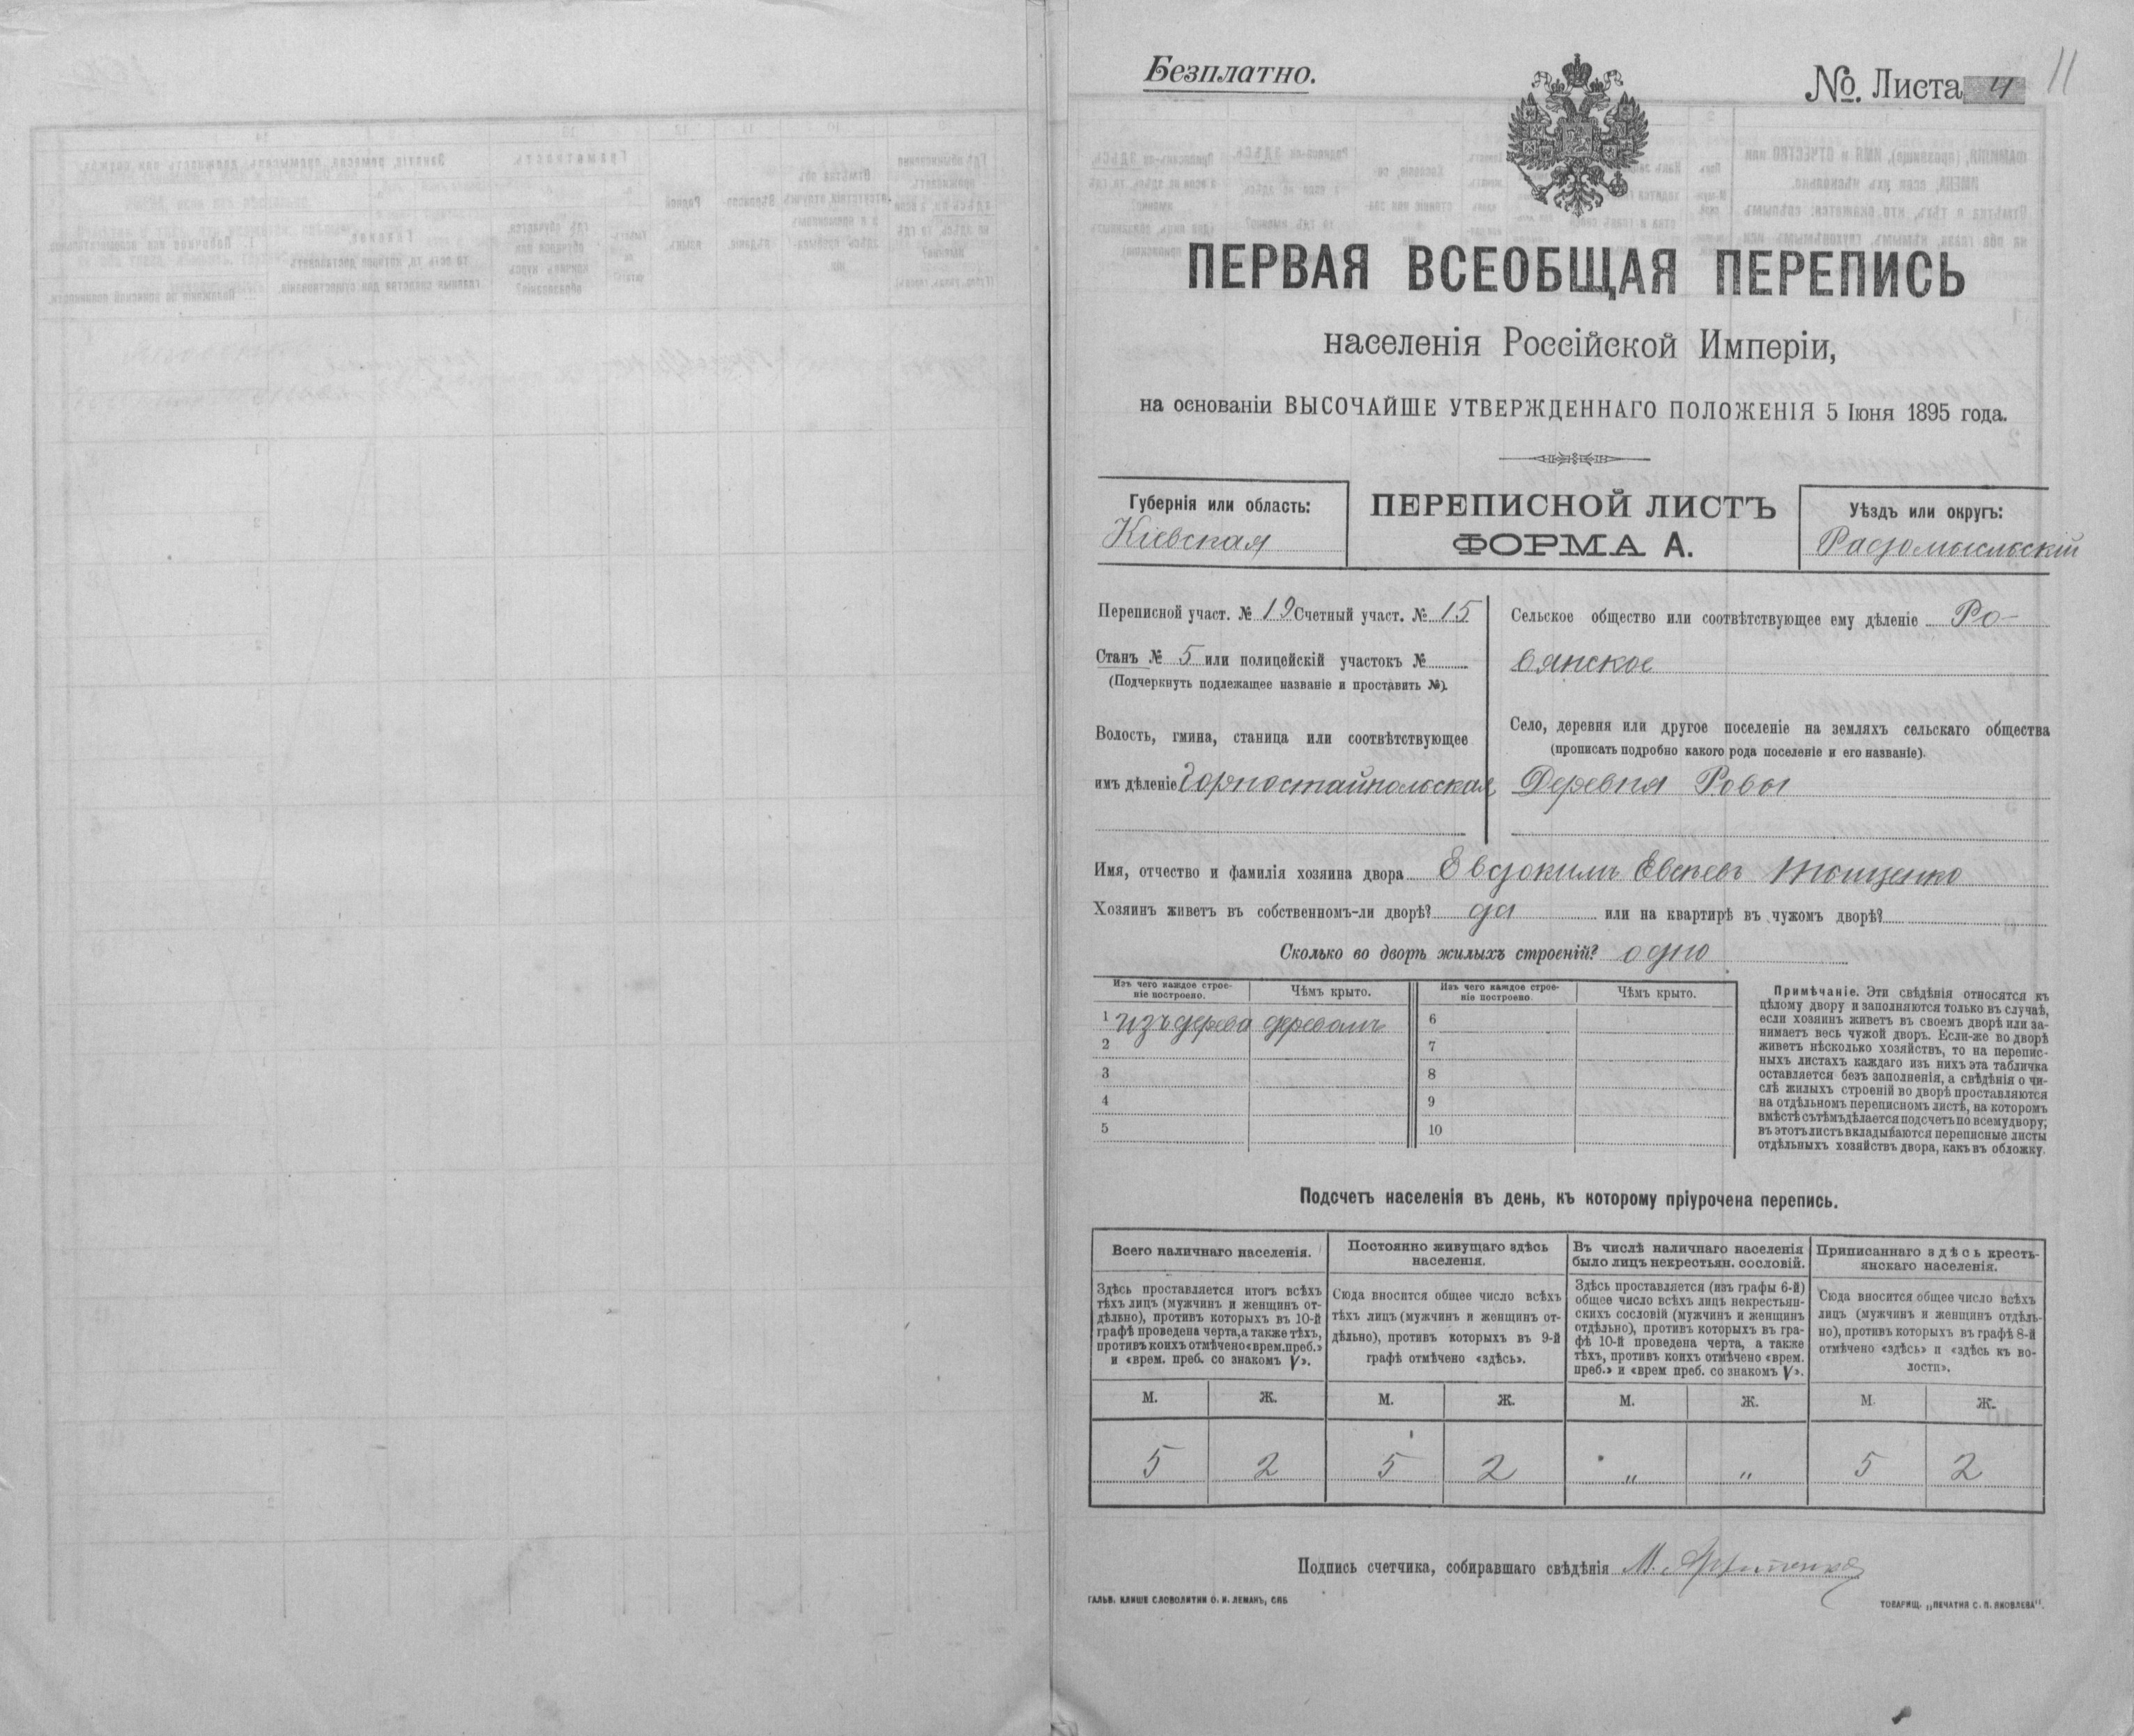 Безплатно.
№ Листа 4
11
ПЕРВАЯ ВСЕОБЩАЯ ПЕРЕПИСЬ
населенія Россійской Имперіи,
на основаніи ВЫСОЧАЙШЕ УТВЕРЖДЕННАГО ПОЛОЖЕНІЯ 5 Іюня 1895 года.
Губернія или область:
Кіевская
ПЕРЕПИСНОЙ ЛИСТЪ
ФОРМА А.
Уѣздъ или округъ:
Радомысльскій
Переписной участ. № 19 Счетный участ. № 15
Станъ № 5 или полицейскій участокъ №
(Подчеркнуть подлежащее названіе и проставить №).
Волость, гмина, станица или соотвѣтствующее
имъ дѣленіе Горностайпольская
Сельское общество или соотвѣтствующее ему дѣленіе Ро-
вянское
Село, деревня или другое поселеніе на земляхъ сельскаго общества
(прописать подробно какого рода поселеніе и его названіе).
Деревня Ровы
Имя, отчество и фамилія хозяина двора Евдокимъ Евсѣевъ Тощенко
Хозяинъ живетъ въ собственномъ-ли дворѣ? да или на квартирѣ въ чужомъ дворѣ?
Сколько во дворѣ жилыхъ строеній? одно
Изъ чего каждое строе-
ніе построено.
Чѣмъ крыто.
Изъ чего каждое строе-
ніе построено.
Чѣмъ крыто.
1 изъ дерева деревомъ
6
2
7
3
8
4
9
5
10
Примѣчаніе. Эти свѣдѣнія относятся къ
цѣлому двору и заполняются только въ случаѣ,
если хозяинъ живетъ въ своемъ дворѣ или за-
нимаетъ весь чужой дворъ. Если-же во дворѣ
живетъ нѣсколько хозяйствъ, то на перепис-
ныхъ листахъ каждаго изъ нихъ эта табличка
оставляется безъ заполненія, а свѣдѣнія о чи-
слѣ жилыхъ строеній во дворѣ проставляются
на отдѣльномъ переписномъ листѣ, на которомъ
вмѣстѣ съ тѣмъ дѣлается подсчетъ по всему двору;
въ этотъ листъ вкладываются переписные листы
отдѣльныхъ хозяйствъ двора, какъ въ обложку.
Подсчетъ населенія въ день, къ которому пріурочена перепись.
Всего наличнаго населенія.
Здѣсь проставляется итогъ всѣхъ
тѣхъ лицъ (мужчинъ и женщинъ от-
дѣльно), противъ которыхъ въ 10-й
графѣ проведена черта, а также тѣхъ,
противъ коихъ отмѣчено «врем. преб.»
и «врем. преб. со знакомъ V».
Постоянно живущаго здѣсь
населенія.
Сюда вносится общее число всѣхъ
тѣхъ лицъ (мужчинъ и женщинъ от-
дѣльно), противъ которыхъ въ 9-й
графѣ отмѣчено «здѣсь».
Въ числѣ наличнаго населенія
было лицъ некрестьян. сословій.
Здѣсь проставляется (изъ графы 6-й)
общее число всѣхъ лицъ некрестьян-
скихъ сословій (мужчинъ и женщинъ
отдѣльно), противъ которыхъ въ гра-
фѣ 10-й проведена черта, а также
тѣхъ, противъ коихъ отмѣчено «врем.
преб.» и «врем преб. со знакомъ V».
Приписаннаго здѣсь кресть-
янскаго населенія.
Сюда вносится общее число всѣхъ
лицъ (мужчинъ и женщинъ отдѣль-
но), противъ которыхъ въ графѣ 8-й
отмѣчено «здѣсь» и «здѣсь къ во-
лости».
М. Ж. М. Ж. М. Ж. М. Ж.
5 2 5 2 „ „ 5 2
Подпись счетчика, собиравшаго свѣдѣнія М.
ГАЛЬВ. КЛИШЕ СЛОВОЛИТНИ О. И. ЛЕМАНЪ, СПБ
ТОВАРИЩ. „ПЕЧАТНЯ С. П. ЯКОВЛЕВА".